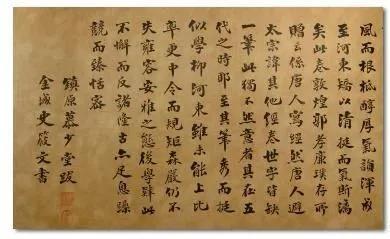 風而根柢醇厚氣韻渾成
至河東矯以清挺而氣斷漓
矣此卷敦煌鄭孝廉璞存所
贈云係唐人寫經然唐人避
太宗諱其他經卷世字皆缺
一筆此獨不然意者其在五
代之時耶至其筆秀而挺
似學柳河東雖未能上比
率更中令而規矩森嚴仍不
失雍容安雅之態後學肄此
不懈而反諸隆古亦足息躁
競而臻恬
鎮原慕少堂跋
金城史筱文書